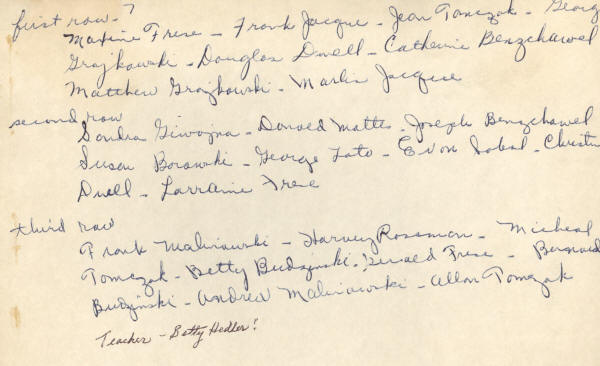 first row - 7
Maxine Frese - Frank Jacque - Jean Tomczak - Georg
Grajkowski - Douglas Duell - Catherine Benzchawel
Matthew Grajkowski - Marlin Jacque
second row
Sandra Giwojna - Donald Mattes - Joseph Benzchawel
Susan Borowski - George Lato - Evon Sobal - Christin
Duell - Lorraine Frese
third row
Frank Malinowski - Harvey Rossman - Micheal
Tomczak - Betty Budzinski - Gerald Frese - Bernard
Budzinski - Andrew Malinowski - Allan Tomczak
Teacher - Betty Hedler!